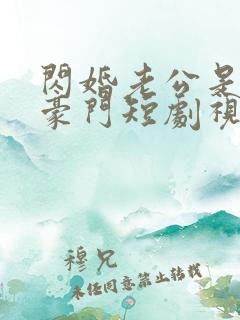 閃婚老公是
豪門短劇視
穆兄
未经同意禁止转载